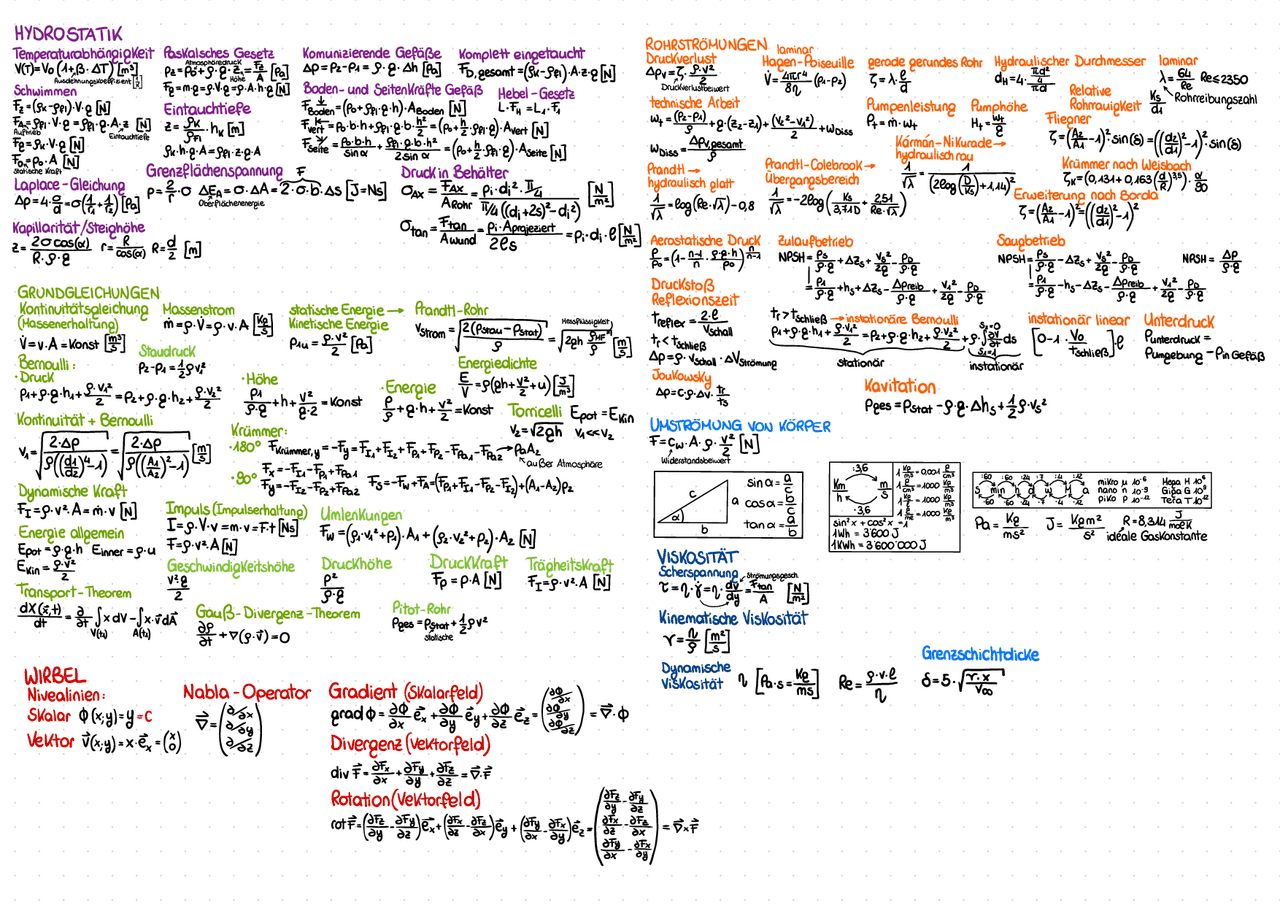 HYDROSTATIK
Temperaturabhängigkeit
V(T)=V₀(1+β·ΔT) [m³]
Ausdehnungskoeffizient [1/K]
Paskalsches Gesetz
Atmosphäredruck
p₂=p₀+ρ·g·z₁=F₂/A [Pa]
Höhe
F_g=m·g=ρ·V·g=ρ·A·h·g [N]
Komunizierende Gefäße
Δp=p₂-p₁=ρ·g·Δh [Pa]
Komplett eingetaucht
F_D,gesamt=(ρ_K-ρ_Fl)·A·z·g [N]
Schwimmen
F_z=(ρ_K-ρ_Fl)·V·g [N]
F_A=ρ_Fl·V·g=ρ_Fl·g·A·z [N]
Auftrieb
Eintauchtiefe
F_g=ρ_K·V·g [N]
F₀=p₀·A [N]
statische Kraft
Eintauchtiefe
z=ρ_K/ρ_Fl·h_K [m]
ρ_K·h·g·A=ρ_Fl·z·g·A
Boden- und Seitenkräfte Gefäß
F_Boden=(p₀+ρ_Fl·g·h)·A_Boden [N]
F_vert=p₀·b·h+ρ_Fl·g·b·h²/2=(p₀+h/2·ρ_Fl·g)·A_vert [N]
F_Seite=p₀·b·h/sinα+ρ_Fl·g·b·h²/2sinα=(p₀+h/2·ρ_Fl·g)·A_Seite [N]
Hebel-Gesetz
L·F_H=L₁·F₁
Laplace-Gleichung
Δp=4·σ/d=σ(1/r₁+1/r₂) [Pa]
Grenzflächenspannung
p=2/r·σ ΔE_A=σ·ΔA=2·σ·b·Δs [J=Ns]
F
Oberflächenenergie
Druck in Behälter
σ_AX=F_AX/A_Rohr=p_i·d_i²·π/4/(π/4((d_i+2s)²-d_i²)) [N/m²]
σ_tan=F_tan/A_wund=p_i·A_projeziert/2ls=p_i·d_i·l [N/m²]
Kapillarität/Steighöhe
z=2σcos(α)/R·ρ·g r=R/cos(α) R=d/2 [m]
GRUNDGLEICHUNGEN
Kontinuitätsgleichung
(Massenerhaltung)
V̇=v·A=konst [m³/s]
Massenstrom
ṁ=ρ·V̇=ρ·v·A [kg/s]
statische Energie →
Kinetische Energie
p₁₄=ρ·v²/2 [Pa]
Prandtl-Rohr
v_Strom=√(2(p_stau-p_stat)/ρ)=√(2gh ρ_HF/ρ) [m/s]
Messflüssigkeit
Staudruck
p₂-p₁=1/2ρv²
Bernoulli:
·Druck
p₁+ρ·g·h₁+ρ·v₁²/2=p₂+ρ·g·h₂+ρ·v₂²/2
·Höhe
p₁/ρ·g+h+v²/g·2=konst
·Energie
p/ρ+g·h+v²/2=konst
Energiedichte
E/V=ρ(gh+v²/2+u) [J/m³]
Torricelli E_pot=E_kin
v₂=√2gh v₁<<v₂
Kontinuität + Bernoulli
v₁=√(2·Δp/ρ((d₁/d₂)⁴-1))=√(2·Δp/ρ((A₁/A₂)²-1)) [m/s]
Krümmer:
·180° F_Krümmer,y=-F_y=F_I1+F_I2+F_p1+F_p2-F_pa1-F_pa2→p_aA₂
außer Atmosphäre
·90° F_x=-F_I1-F_p1+F_pa1
F_y=-F_I2-F_p2+F_pa2
F_S=-F_W+F_A=(F_p1+F_I1-F_p2-F_I2)+(A₁-A₂)p₂
Dynamische Kraft
F_I=ρ·v²·A=ṁ·v [N]
Impuls (Impulserhaltung)
I=ρ·V·v=m·v=F·t [Ns]
F=ρ·v²·A [N]
Umlenkungen
F_W=(ρ₁·v₁²+p₁)·A₁+(ρ₂·v₂²+p₂)·A₂ [N]
Energie allgemein
E_pot=ρ·g·h E_inner=ρ·u
E_kin=ρ·v²/2
Geschwindigkeitshöhe
v²·g/2
Druckhöhe
p²/ρ·g
Druckkraft
F_p=p·A [N]
Trägheitskraft
F_I=ρ·v²·A [N]
Transport-Theorem
dX(x,t)/dt=∂/∂t∫x dV-∫x·v⃗dA⃗
V(t) A(t)
Gauß-Divergenz-Theorem
∂ρ/∂t+∇(ρ·v⃗)=0
Pitot-Rohr
p_ges=p_stat+1/2ρv²
statische
WIRBEL
Nivealinien:
Skalar ϕ(x;y)=y=c
Vektor v⃗(x;y)=x·e⃗ₓ=(x 0)
Nabla-Operator
∇⃗=(∂/∂x ∂/∂y ∂/∂z)
Gradient (Skalarfeld)
grad ϕ=∂ϕ/∂x e⃗ₓ+∂ϕ/∂y e⃗_y+∂ϕ/∂z e⃗_z=(∂ϕ/∂x ∂ϕ/∂y ∂ϕ/∂z)=∇⃗·ϕ
Divergenz (Vektorfeld)
div F⃗=∂Fₓ/∂x+∂F_y/∂y+∂F_z/∂z=∇⃗·F⃗
Rotation (Vektorfeld)
rot F⃗=(∂F_z/∂y-∂F_y/∂z)e⃗ₓ+(∂Fₓ/∂z-∂F_z/∂x)e⃗_y+(∂F_y/∂x-∂Fₓ/∂y)e⃗_z=(∂F_z/∂y-∂F_y/∂z ∂Fₓ/∂z-∂F_z/∂x ∂F_y/∂x-∂Fₓ/∂y)=∇⃗×F⃗
ROHRSTRÖMUNGEN
Druckverlust
Δp_V=ζ·ρ·v²/2
Druckverlustbeiwert
laminar
Hagen-Poiseuille
V̇=4πr⁴/8η(p₁-p₂)
gerade gerundes Rohr
ζ=λ·l/d
Hydraulischer Durchmesser
d_H=4·(πd²/4)/πd
laminar
λ=64/Re Re≤2350
Rohrreibungszahl
k_s/d₁
Relative
Rohrrauigkeit
technische Arbeit
w_t=(p₂-p₁)/ρ+g(z₂-z₁)+(v₂²-v₁²)/2+w_Diss
w_Diss=Δp_V,gesamt/ρ
Pumpenleistung
P_t=ṁ·w_t
Pumphöhe
H_t=w_t/g
Fliegner
ζ=(A₂/A₁-1)²·sin(δ)=((d₂/d₁)²)²·sin(δ)
Prandtl →
hydraulisch glatt
1/√λ=log(Re·√λ)-0,8
Prandtl-Colebrook →
Übergangsbereich
1/√λ=-2log(k_s/3,71D+2,51/Re·√λ)
Kármán-Nikurade→
hydraulisch rau
1/√λ=1/(2log(D/k_s)+1,14)²
Krümmer nach Weisbach
ζ_K=(0,131+0,163(d/R)^3,5)·α/90
Erweiterung nach Borda
ζ=(A₂/A₁-1)²=((d₂/d₁)²-1)²
Aerostatische Druck
p/p₀=(1-n-1/n·ρ·g·h/p₀)^n/n-1
Zulaufbetrieb
NPSH=p_s/ρ·g+Δz_s+v_s²/2g-p_D/ρ·g
=p₁/ρ·g+h_s+Δz_s-Δp_reib/ρ·g+v₁²/2g-p_D/ρ·g
Saugbetrieb
NPSH=p_s/ρ·g-Δz_s+v_s²/2g-p_D/ρ·g
=p₁/ρ·g-h_s-Δz_s-Δp_reib/ρ·g+v₁²/2g-p_D/ρ·g
NPSH=Δp/ρ·g
Druckstoß
Reflexionszeit
t_reflex=2·l/v_schall
t_r<t_schließ
Δp=ρ·v_schall·Δv_strömung
t_r>t_schließ→instationäre Bernoulli
p₁+ρ·g·h₁+ρ·v₁²/2=p₂+ρ·g·h₂+ρ·v₂²/2+ρ·∫∂v/∂t ds
s₂=0
s₁=1
stationär
instationär
instationär linear
[0-1·v₀/t_schließ]l
Unterdruck
p_unterdruck=
p_umgebung-p_in Gefäß
Joukowsky
Δp=c·ρ·Δv·t_r/t_s
Kavitation
p_ges=p_stat-ρ·g·Δh_s+1/2ρ·v_s²
UMSTRÖMUNG VON KÖRPER
F=c_w·A·ρ·v²/2 [N]
Widerstandsbeiwert
c a b α
sin α=a/c
cos α=b/c
tan α=a/b
·3,6
km/h m/s
:3,6
sin²x+cos²x=1
1kWh=3'600 J
1kWh=3'600'000 J
:60 :60 :24 :7 :4 :12
s min h d w m a
·60 ·60 ·24 ·7 ·4 ·12
mikro μ 10⁻⁶
nano n 10⁻⁹
piko p 10⁻¹²
Mega M 10⁶
Giga G 10⁹
Tera T 10¹²
Pa=kg/ms² J=kgm²/s² R=8,314 J/molK
ideale Gaskonstante
VISKOSITÄT
Scherspannung
τ=η·γ̇=η·dv/dy=F_tan/A [N/m²]
Strömungsgesch.
Kinematische Viskosität
ν=η/ρ [m²/s]
Dynamische
Viskosität η [Pa·s=kg/ms] Re=ρ·v·l/η
Grenzschichtdicke
δ=5·√(ν·x/v∞)